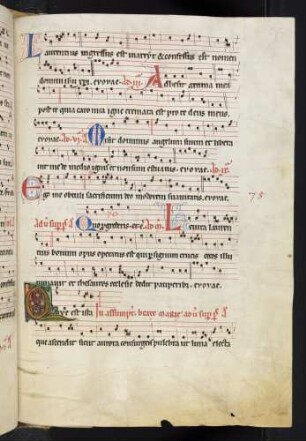 Laurentius ingressus est martyr & confessus est nomen
domini ihu xpi. evovae. Adhesit anima mea
post te quia caro mea igne cremata est pro te deus meus.
evovae. Misit dominus angelum suum et libera
uit me de medio ignis et non sum estuatus. evovae.
me obtuli sacrificium deo in odorem suauitatis. evovae.
75
Quo progrederis. Leuita Lauren
tius bonum opus operatus est qui per signum crucis cecos illu
minauit et thesauros ecclesie dedit pauperibus. evovae.
Que est ista In assumpt. beate marie
que ascendit sicut aurora consurgens pulchra ut luna electa